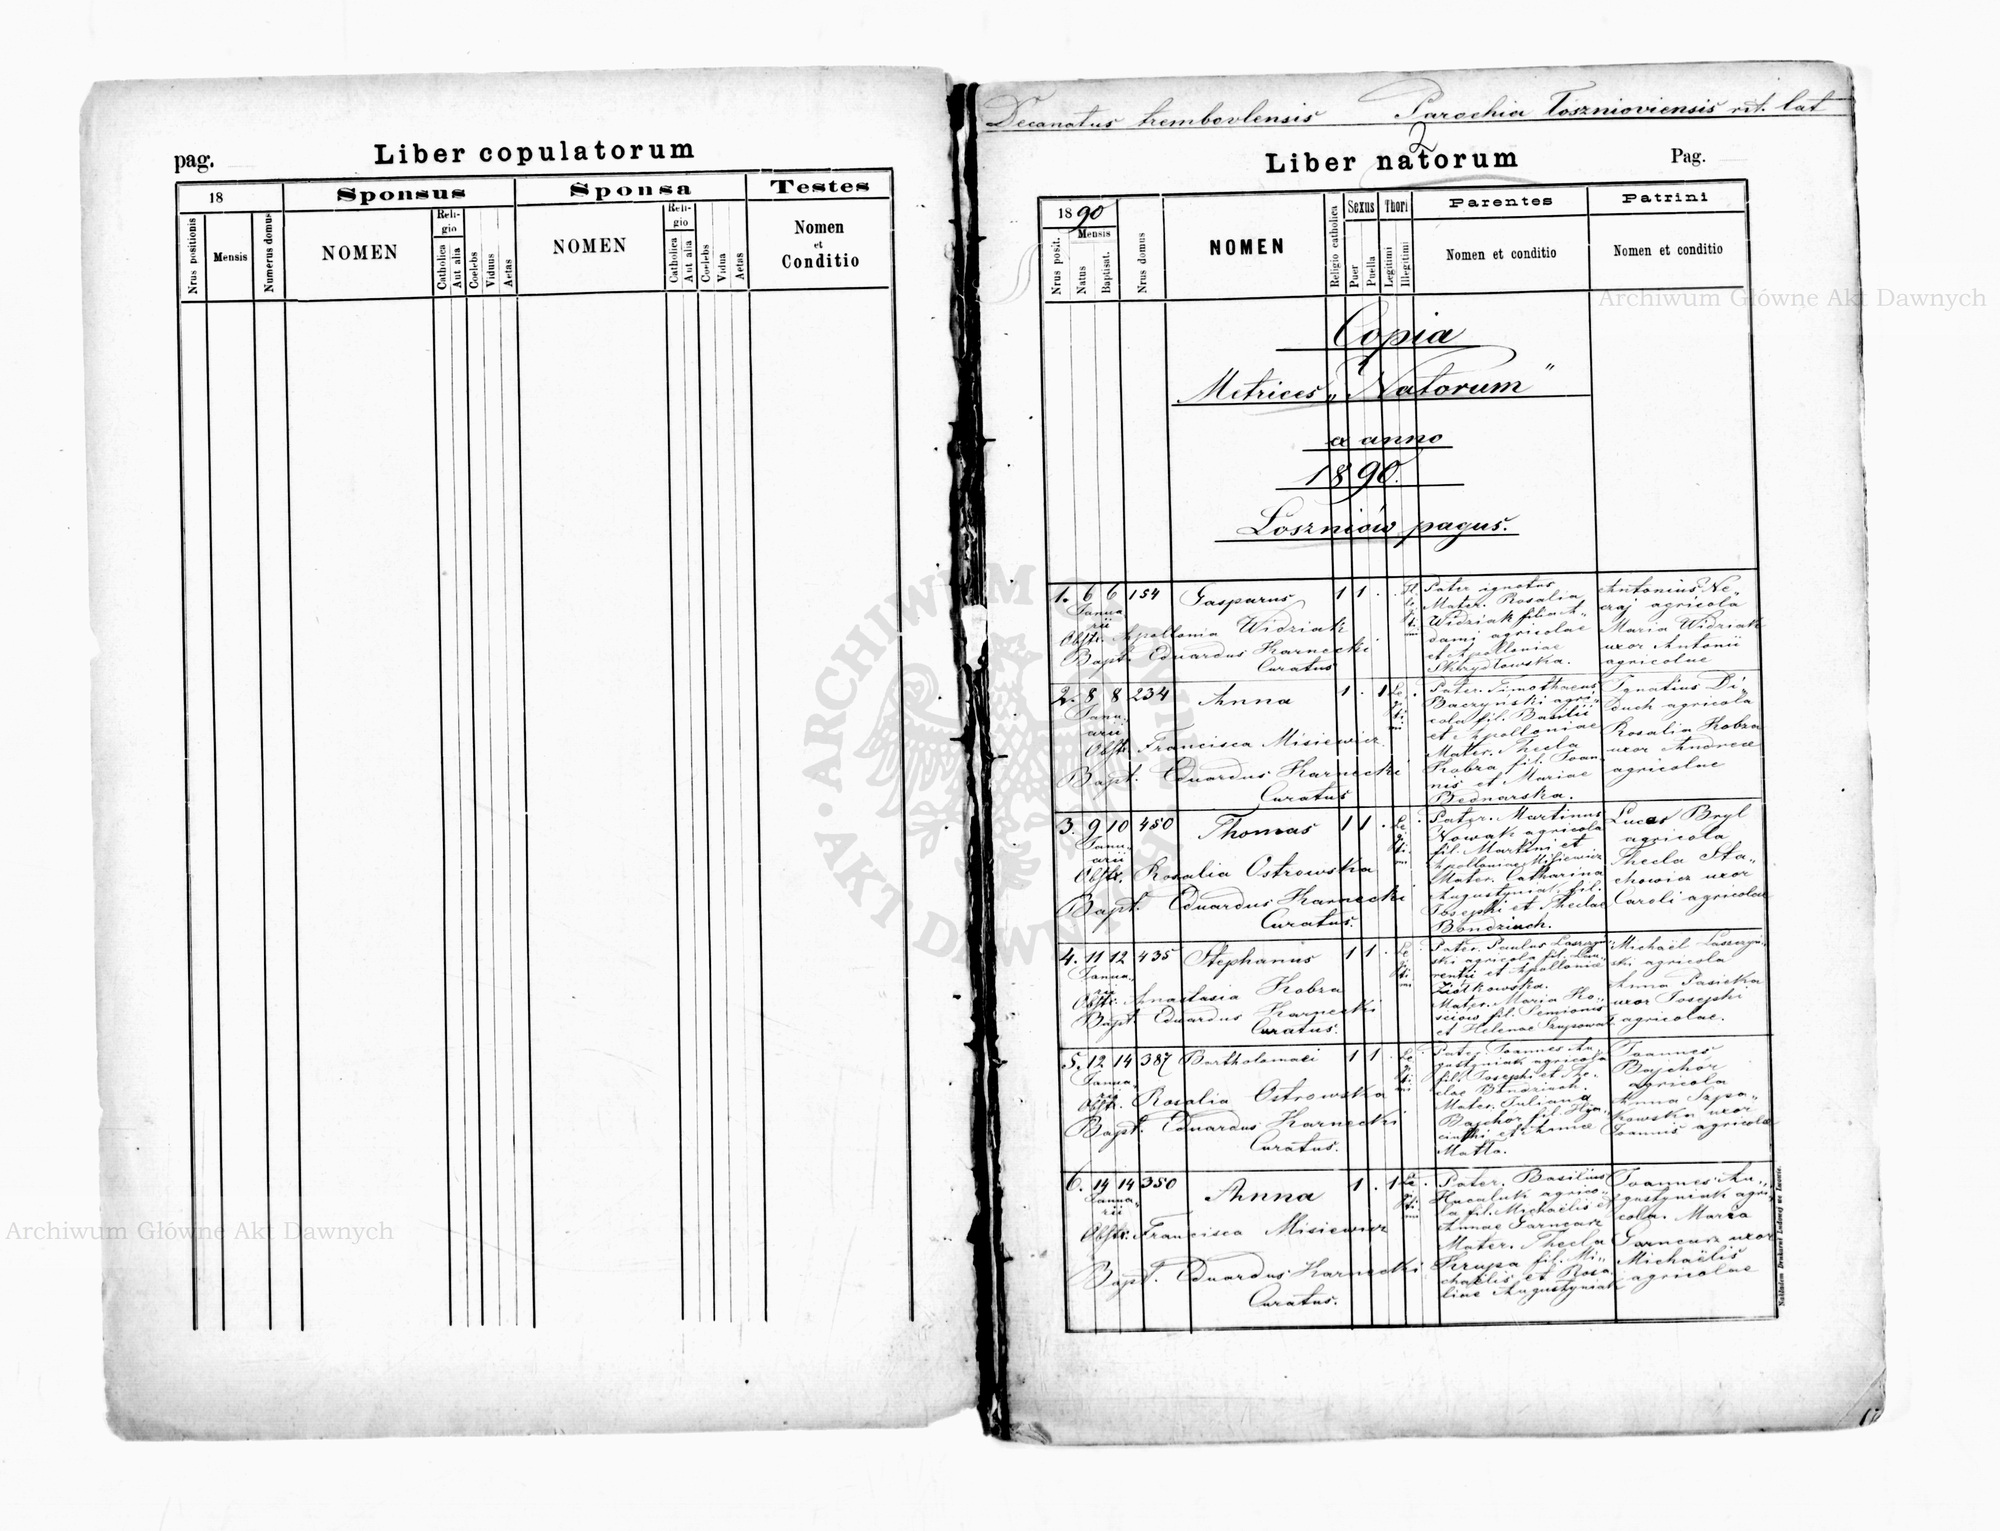 pag.
Liber copulatorum
18
Sponsus
Sponsa
Testes
Nrus positionis
Mensis
Numerus domus
NOMEN
Religio
Catholica
Aut alia
Coelebs
Viduus
Aetas
NOMEN
Religio
Catholica
Aut alia
Coelebs
Vidua
Aetas
Nomen
et
Conditio
Decanatus trembovlensis Parochia Łosznioviensis rit. lat
2
Liber natorum
Pag.
1890
Nrus posit.
Mensis
Natus
Baptisat.
Nrus domus
NOMEN
Religio catholica
Sexus
Puer
Puella
Thori
Legitimi
Illegitimi
Parentes
Nomen et conditio
Patrini
Nomen et conditio
Copia
Metrices „Natorum"
a anno
1890.
Łoszniów pagus.
1. 6 6 154 Gasparus 1 1 .
Janua
rii
Obstr. Apollonia Widziak
Bapt. Eduardus Karnecki
Curatus
Pater ignotus
Mater. Rosalia
Widziak filia A„
dami agricolae
et Apolloniae
Skrydlowska.
Antonius Ne„
craj agricola
Maria Widziak
uxor Antonii
agricolae
2. 8 8 234 Anna 1 . 1 Le
gi
ti
mi
Janu„
arii
Obstr. Francisca Misiewicz
Bapt. Eduardus Karnecki
Curatus
Pater. Timothaeus
Baczyński agri„
cola fil. Basilii
et Apolloniae
Mater. Thecla
Kobra fil. Joan„
nis et Mariae
Bednarska.
Ignatius Di„
duch agricola
Rosalia Kobza
uxor Andreae
agricolae
3. 9 10 450 Thomas 1 1 . Le
gi
ti
mi
Janu„
arii
Obstr. Rosalia Ostrowska
Bapt. Eduardus Karnecki
Curatus.
Pater. Martinus
Nowak agricola
fil. Martini et
Apolloniae Misiewicz
Mater. Catharina
Augustyniak fil.
Josephi et Theclae
Bondziuch.
Lucas Bryl
agricola
Thecla Sta„
chowicz uxor
Caroli agricolae
4. 11 12 435 Stephanus 1 1 . Le
gi
ti
mi
Janua„
rii
Obstr. Anastasia Kobra
Bapt. Eduardus Karnecki
Curatus.
Pater. Paulus Laszczyń„
ski agricola fil. Lau„
rentii et Apolloniae
Ziółkowska.
Mater. Maria Ko„
sciow fil. Semionis
et Helenae
Michaël Laszczyń„
ski agricola
Anna Pasieka
uxor Josephi
agricolae.
5. 12 14 387 Bartholomaei 1 1 . Le
gi
ti
mi
Janua„
rii
Obstr. Rosalia Ostrowska
Bapt. Eduardus Karnecki
Curatus.
Pater. Joannes Au„
gustyniak agricola
fil. Josephi et The„
clae Bondziuch.
Mater. Juliana
Bajchor fil. Hya„
cinthi et Annae
Matla.
Joannes
Bajchór
agricola
Anna Szpa„
kowska uxor
Joannis agricolae
6. 14 14 350 Anna 1 . 1 Le
gi
ti
mi
Janua„
rii
Obstr. Francisca Misiewicz
Bapt. Eduardus Karnecki
Curatus.
Pater. Basilius
Hucaluk agrico„
la fil. Michaëlis et
Annae Garncarz
Mater. Thecla
Krupa fil. Mi„
chaëlis et Rosa„
liae Augustyniak
Joannes Au„
gustyniak agri„
cola. Maria
Garncarz uxor
Michaëlis
agricolae
Nakładem Drukarni Ludowej we Lwowie.
Archiwum Główne Akt Dawnych
Archiwum Główne Akt Dawnych
ARCHIWUM GŁÓWNE AKT DAWNYCH